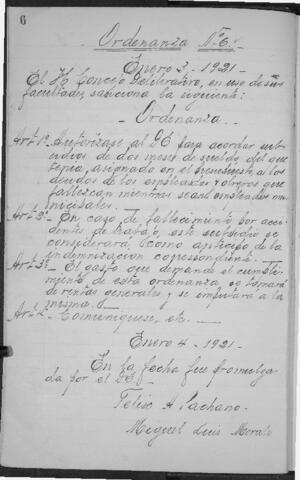 6
Ordenanza Nº 6.
Enero 3 - 1921 -
El H. Concejo Deliberativo, en uso de sus
facultades sanciona la siguiente:
- Ordenanza. -
Artº 1º Autorizase al D.E. para acordar sub-
sidios de dos meses de sueldo, del que
tenia, asignado en el presupuesto, a los
deudos de los empleados y obreros que
fallezcan mientras sean empleados mu-
nicipales.
Artº 2º - En caso de fallecimiento por acci-
dentes de trabajo, este subsidio se
considerará como anticipo de la
indemnizacion correspondiente.
Artº 3º - El gasto que demande el cumpli-
miento de esta ordenanza, se tomará
de rentas generales, y se imputará a la
misma.
Artº 4º - Comuniquese, etc. -
Enero 4 - 1921 -
En la fecha fue promulga-
da por el D.E.
Felix A Pachano.
Miguel Luis